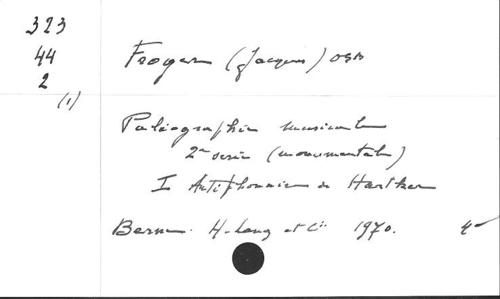 323
44
2
(1)
Froger (Jacques) OSB
Paléographie musicale
2e série (monumentale)
I Antiphonaire de Hartker
Berne. H. Lang et Cie 1970. 4°